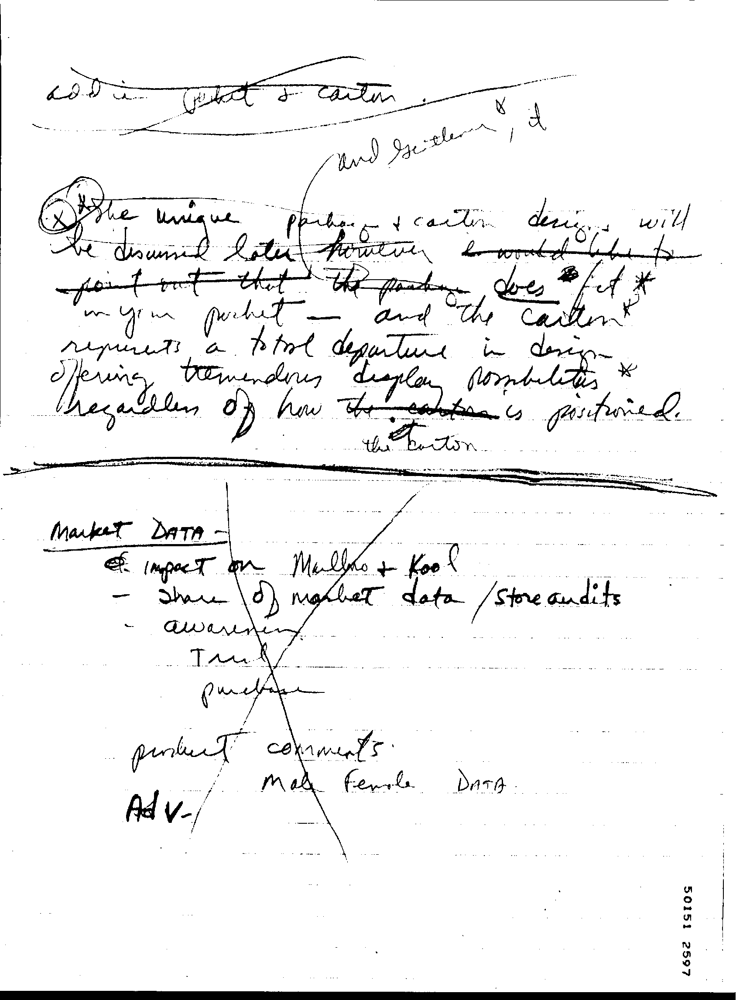 add in packet & carton.
and gentlemen*, it
* *The unique package & carton design will
be discussed later however I would like to
point out that the package does fit *
in your pocket — and the carton*
represents a total departure in design
offering tremendous display possibilities *
regardless of how the carton is positioned.
the carton
Market DATA -
impact on Marlboro + Kool
- Share of market data / store audits
- awareness
Trial
purchase
product comments.
Male Female DATA
Adv-
50151 2597